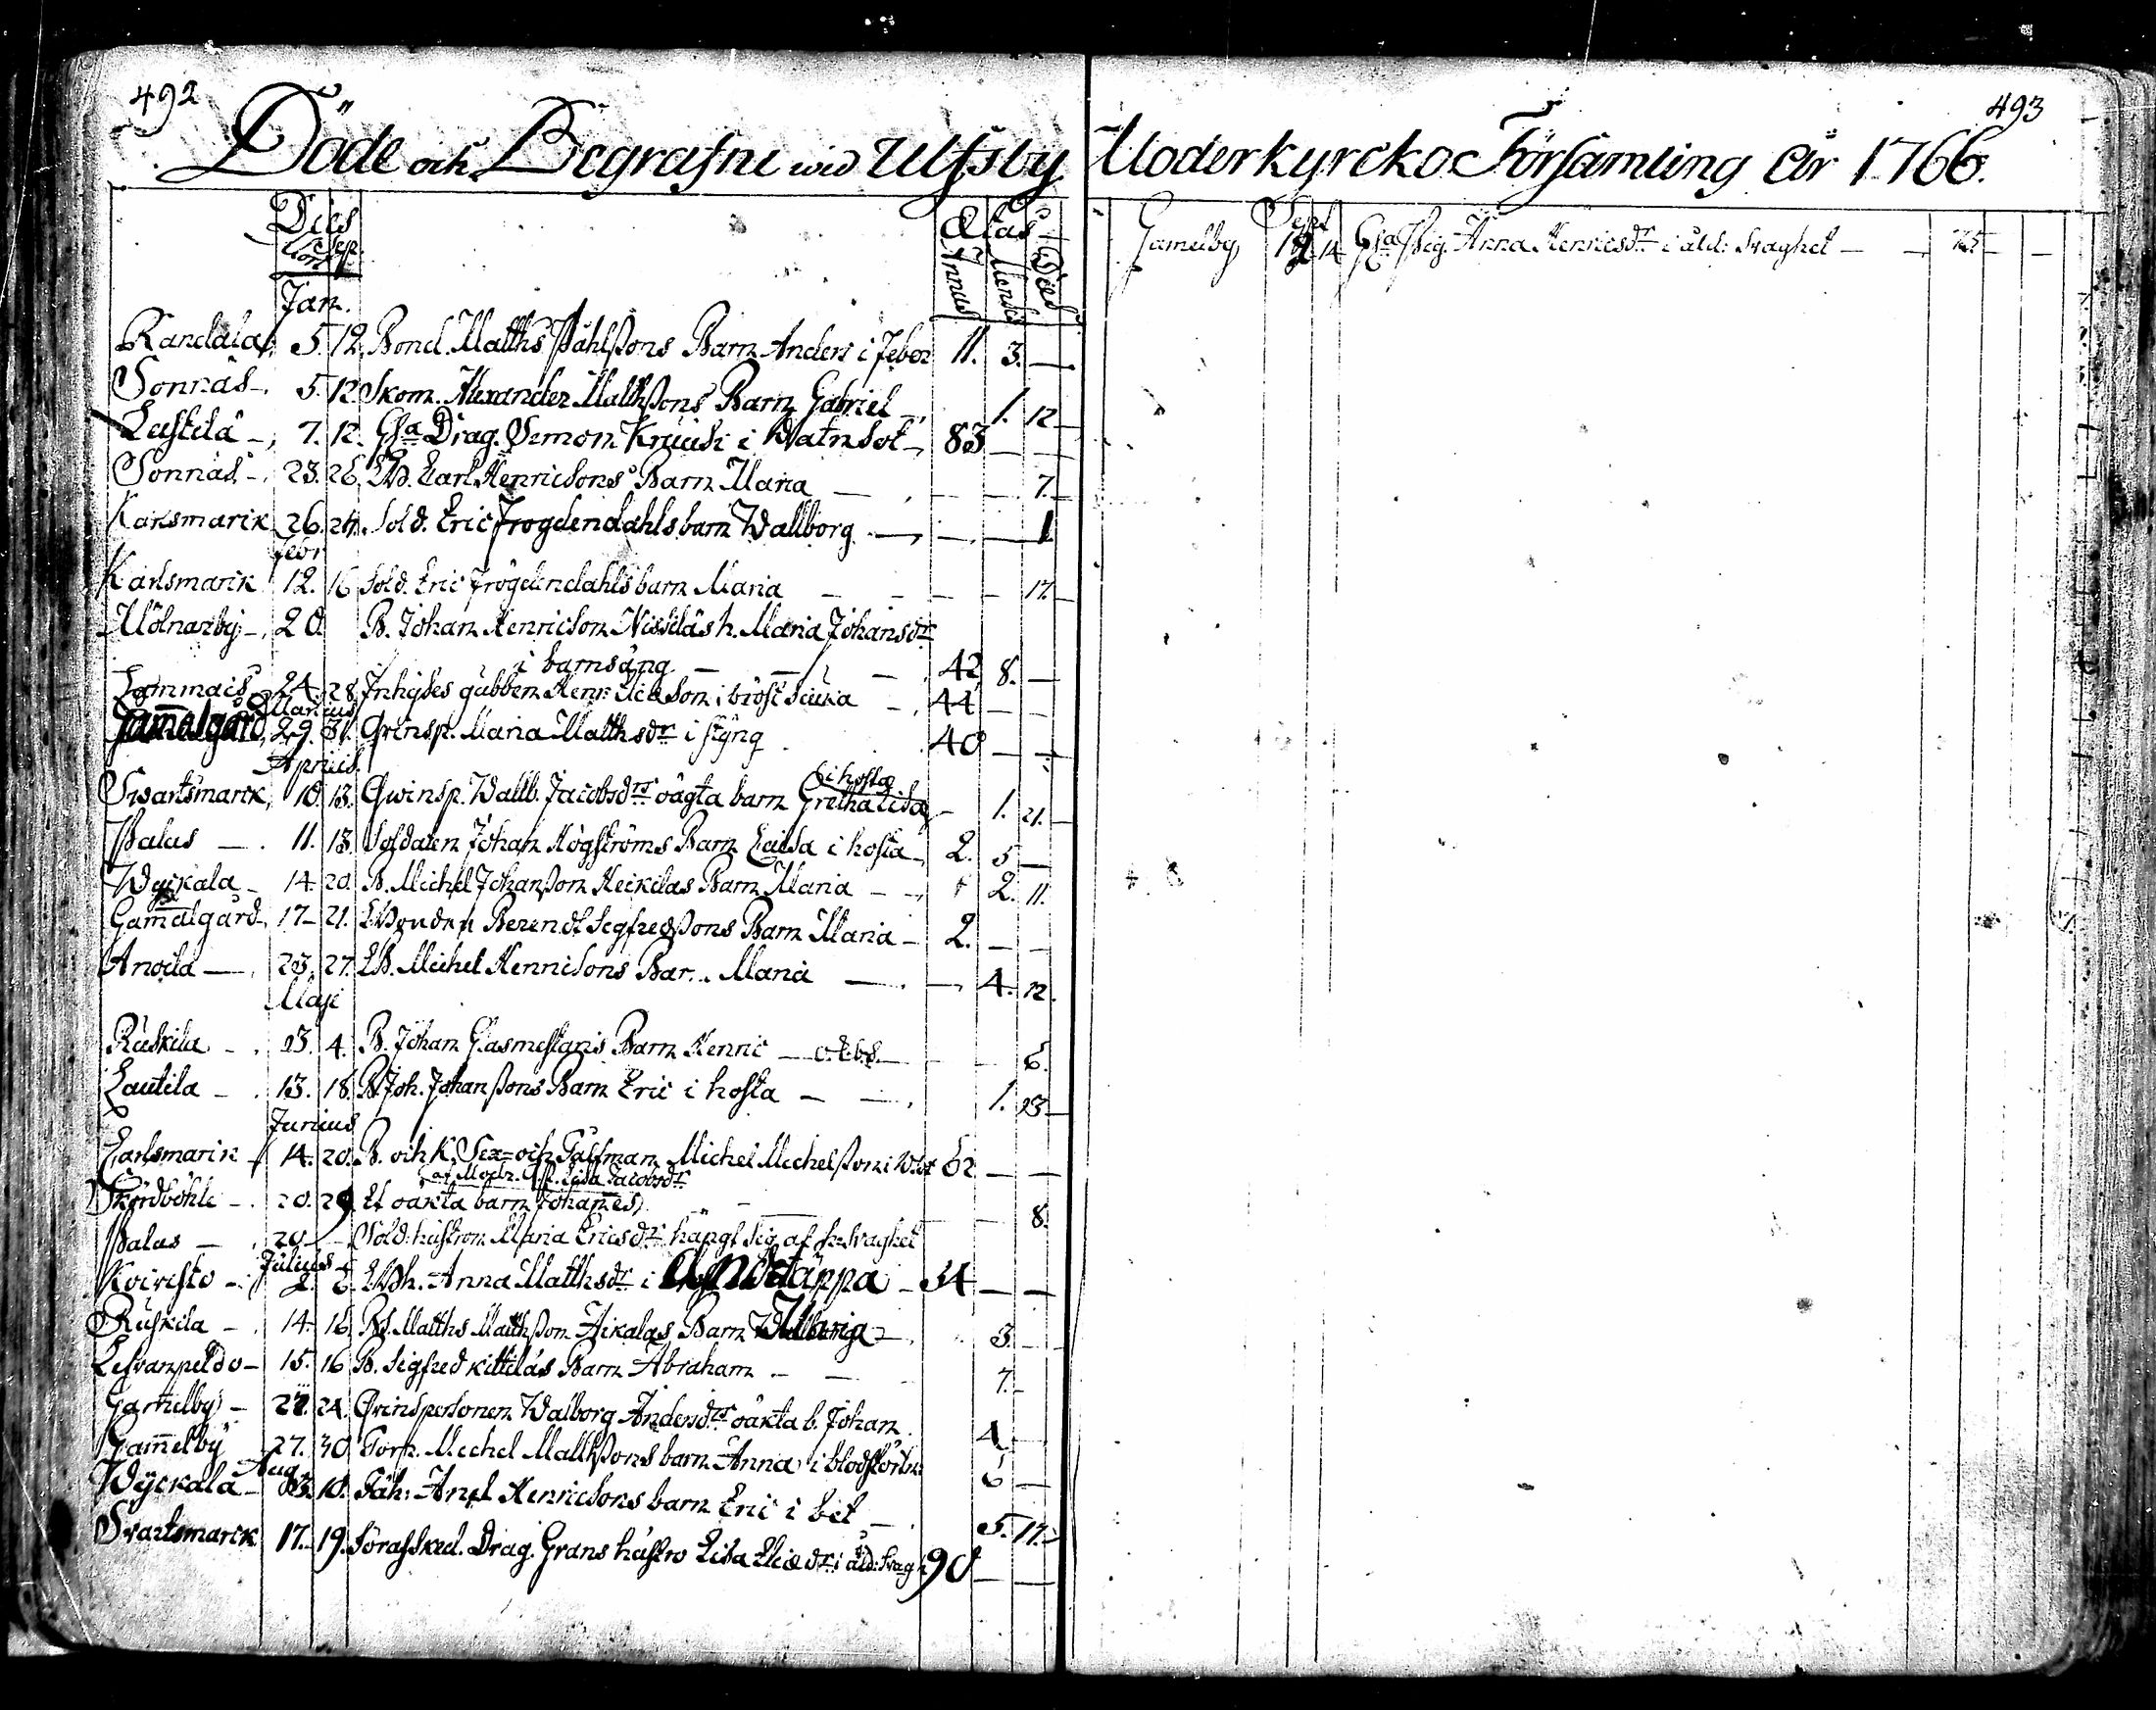 492
493
Döde och Begrafne wid Ulfsby Moderkyrcko Församling åhr 1766.
Dies
Ætas
Mort. Sep.
Annus Mens. Dies
Jan.
5. 12. Bond. Matths Påhlssons Barn Anders i feber 11. 3. —
Sonnäs — 5. 12 Skom. Alexander Matthssons Barn Gabriel — 1. 12
7. 12. Gla Drag. Simon i Watnsot — 83 — —
Sonnäs — 23. 26. Carl Henricsons Barn Maria — — — 7. —
Karlsmarck 26. 27. Sold. Eric Frögdendahls barn Wallborg — — — 1
febr
Karlsmarck 12. 16 Sold. Eric Frögdendahls barn Maria — — — 17. —
Mölnarby — 20. B. Johan Henricson Nissiläs h. Maria Johansdr
i barnsäng — — 42 8. —
24. 28. Inhyses gubben Henr. i bröst — 44 — —
Martius
Gam̅algård 29. 31. Qvinsp. Maria Matthsdr i styng 40 — —
Aprilis
Swartsmarck 10. 13. Qwinsp. Wallb. Jacobsdrs oägta barn Gretha Lisa i hosta — 1. 21. —
Palus — 11. 13. Soldaten Johan Högströms Barn Lisa i hosta — 2. 5 —
Wyckala — 14. 20. B. Michel Johansson Heickilas Barn Maria — 2. 11.
Gam̅algård — 17 — 21. Berendt Segfredssons Barn Maria — 2. — —
Anoila — 23. 27. Michel Henricsons Bar.. Maria — — 4. 12.
Maji
Ruskila — 23. 4. B. Johan Glasmestaris Barn Henric — — 6.
Lautila — 13. 18. B. Joh. Johanssons Barn Eric i hosta — — 1. 23 —
Junius
Carlsmarck 14. 20. B. och K. Sex= och Tålfman Michel Michelsson i 62 — —
af Lisa Jacobsdr
20. 29. Et oäkta barn Johannes — — — 8.
Palus — 20 — Sold: hustron Maria Ericsdr hängt sig af svaghet
Julius
Koivisto — 2. 6. Anna Matthsdr i andtäppa — 34 — —
Ruskila — 14. 16. Matths Matthsson Aikalas Barn Ulbrica — 3. —
15. 16 B. Sigfred Kittiläs Barn Abraham — — 7. —
Gam̅elby — 22. 24. Qvinspersonen Walborg Andersdrs oäkta b. Johan 4 —
Gam̅elby 27. 30 Torp. Mechel Matthssons barn Anna i 6 —
Aug
Wyckala — 10. Henricsons barn Eric i — 5. 17. —
Svartsmarck 17. 19. förafsked. Drag. Grans hustro Lisa Eliædr i åld: svag 90 — —
Sept
Gamelby 12 14 Gla Pig. Anna Henricsdr i åld: svaghet — — 75 — —